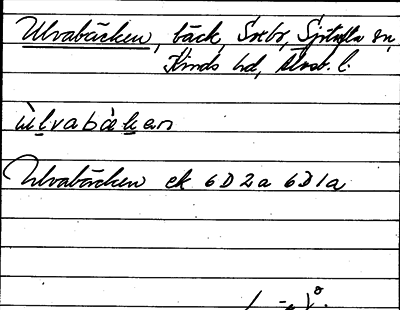 Ulvabäcken, bäck, Sjötofta sn,
Kinds hd, Älvsb. l.
ùlvabäkan
Ulvabäcken ek 6D2a 6D1a